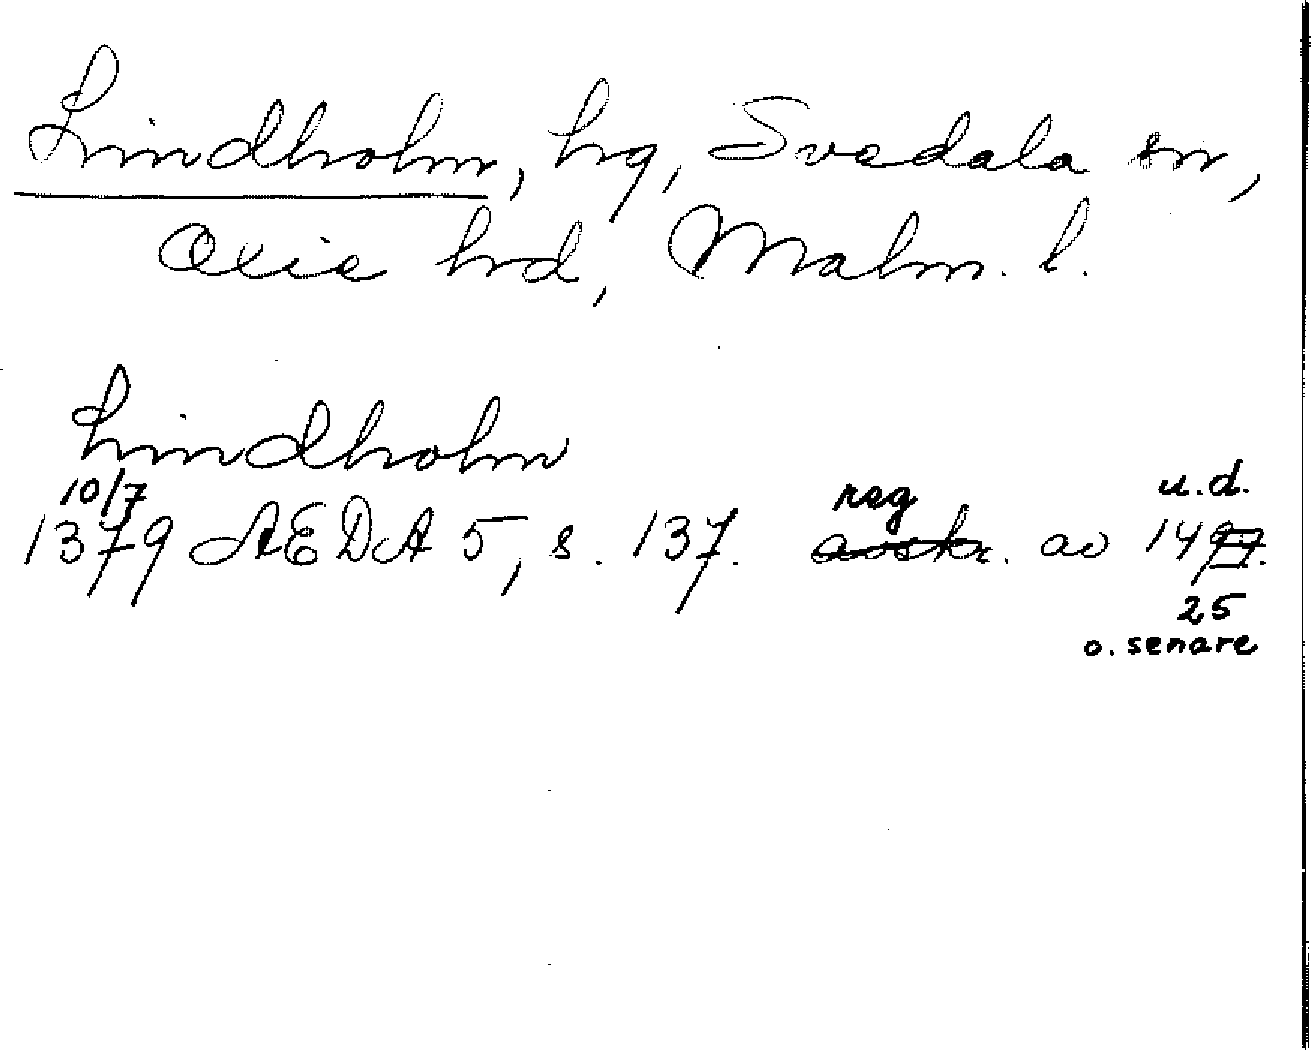 Lindholm, hg, Svedala sn,
Oxie hd, Malm. l.
Lindholm
10/7 reg u.d.
1379 AEDA 5, s. 137. avskr. av 1497.
25
o. senare